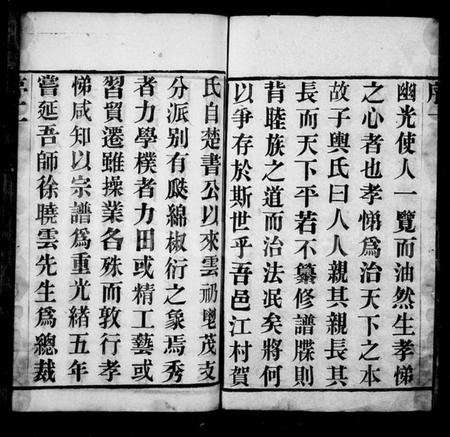 幽光使人一覽而油然生孝悌
之心者也孝悌爲治天下之本
故子輿氏曰人人親其親長其
長而天下平若不纂修譜牒則
背睦族之道而治法泯矣將何
以爭存於斯世乎吾邑江村賀
氏自楚書公以來雲礽鬯茂支
分派別有瓞綿椒衍之象焉秀
者力學樸者力田或精工藝或
習貿遷雖操業各殊而敦行孝
悌咸知以宗譜爲重光緒五年
嘗延吾師徐曉雲先生爲總裁
序二